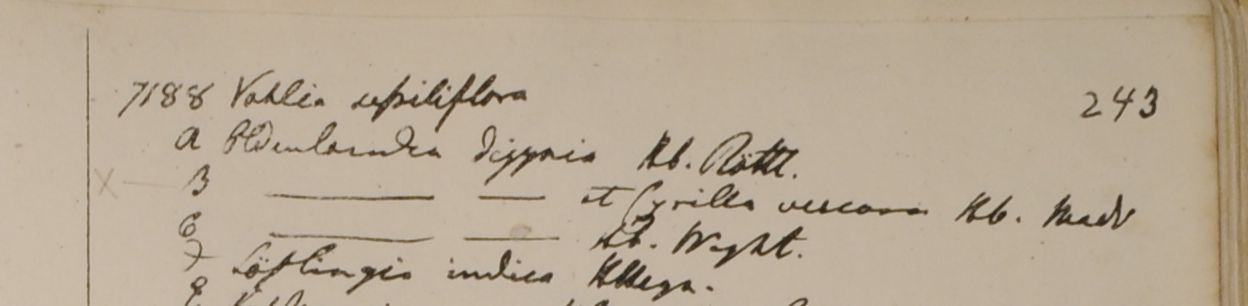 7188 Vahlia sessiliflora 243
a Oldenlandia digyna Hb. Rottl.
X — B —— — et Cyrilla Hb. Madr
—— —— Hb. Wight.
Löflingia indica Hb